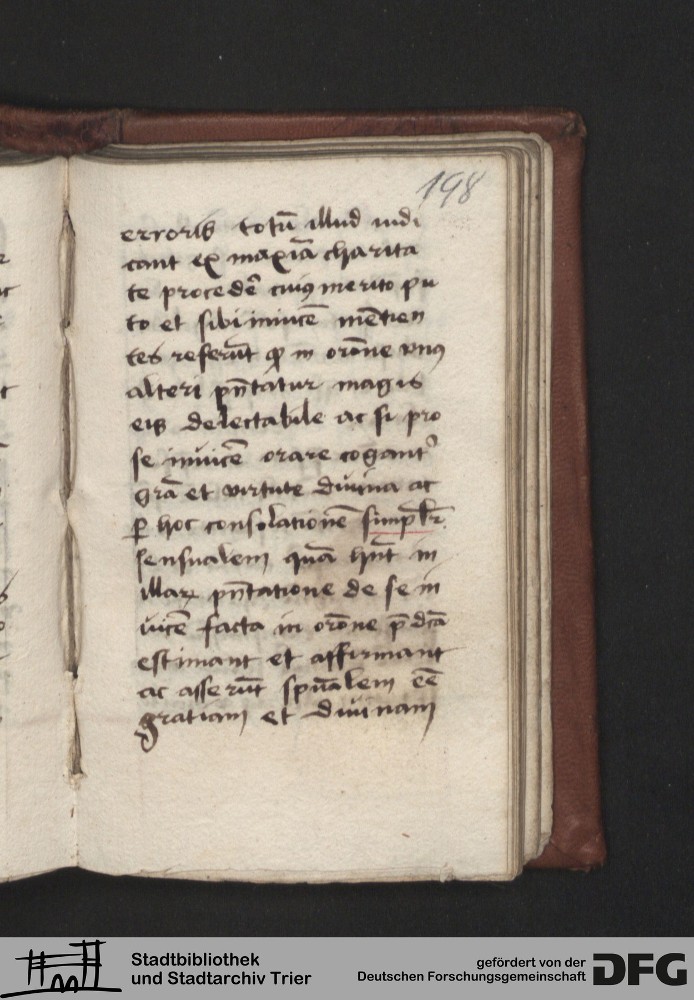 198
erroris totū illud iudi
cant ex maxīa charita
te procedē cuiꝰ merito pu
to et sibi inuicē mētien
tes referūt ꝙ in orōne vnꝰ
alteri pn̄tatur magis
eis delectabile ac si pro
se inuicē orare cogant᷑
grā et virtute diuina ac
ꝑ hoc consolationē simpl̄r
sensualem quā hn̄t in
illaꝝ pn̄tatione de se in
uicē facta in orōne p̄dcā
estimant et affirmant
ac asserūt spūalem eē
gratiam et diuinam
Stadtbibliothek
und Stadtarchiv Trier
gefördert von der
Deutschen Forschungsgemeinschaft
DFG